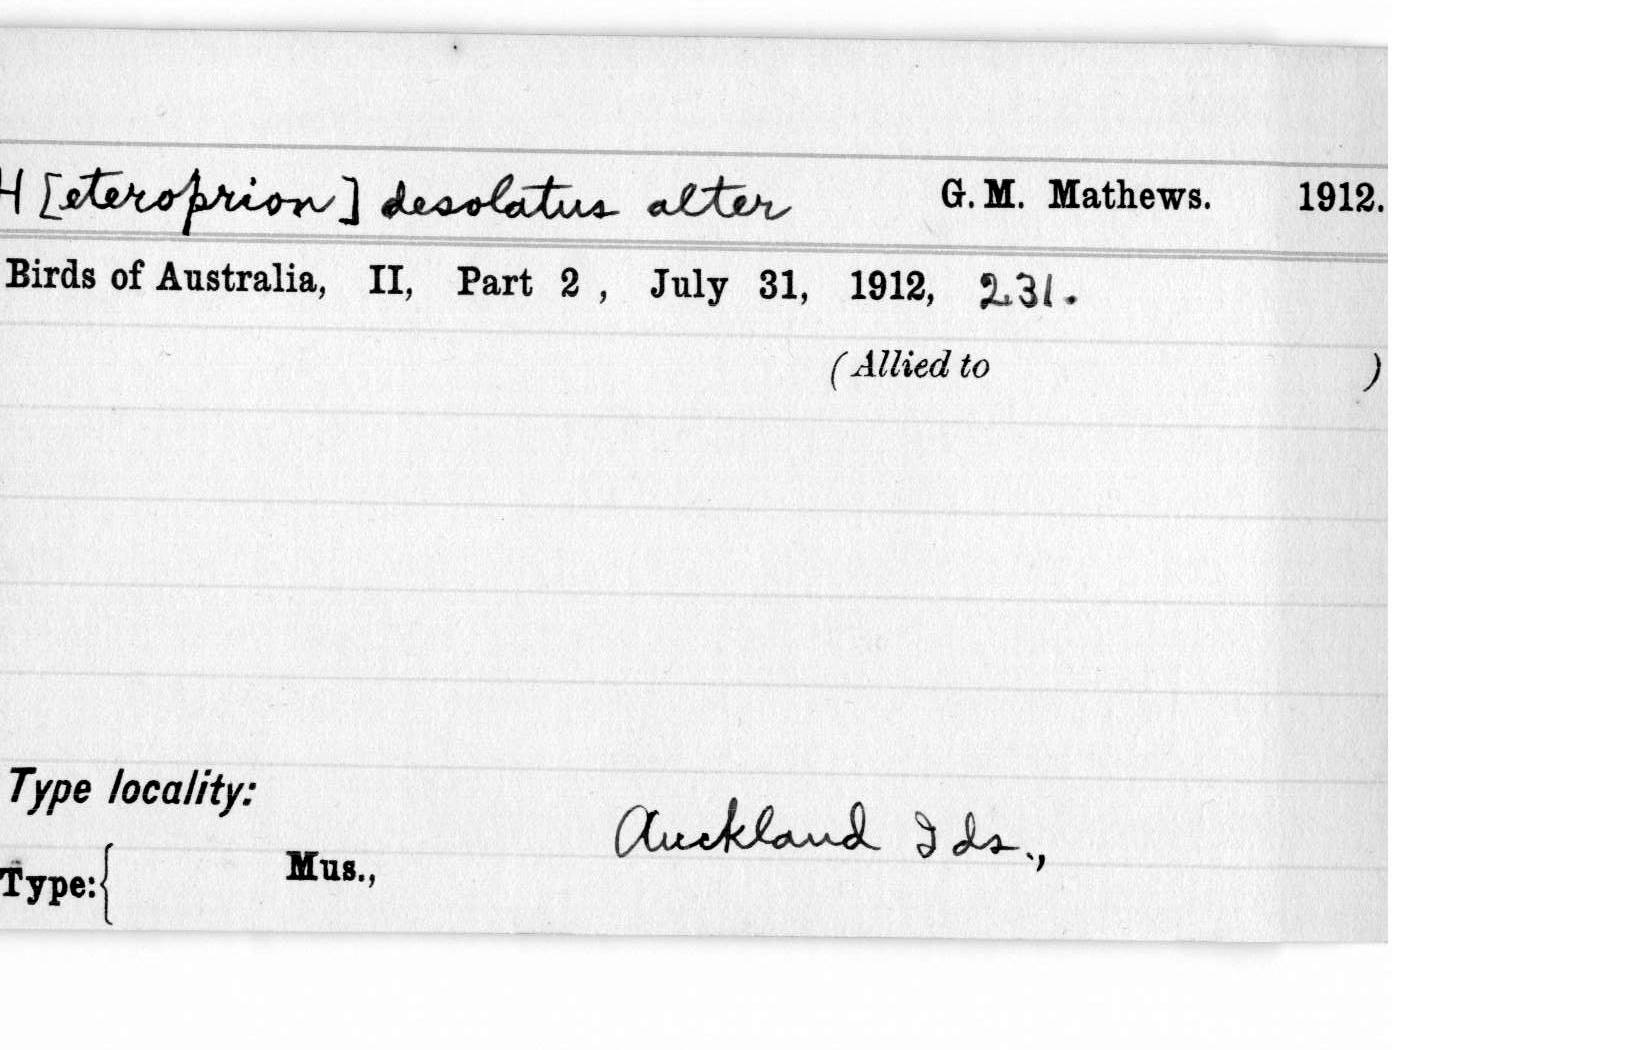 H[eteroprion] desolatus alter G. M. Mathews. 1912.
Birds of Australia, II, Part 2, July 31, 1912, 231.
(Allied to )
Type locality:
Auckland Ids.,
Type:{ Mus.,